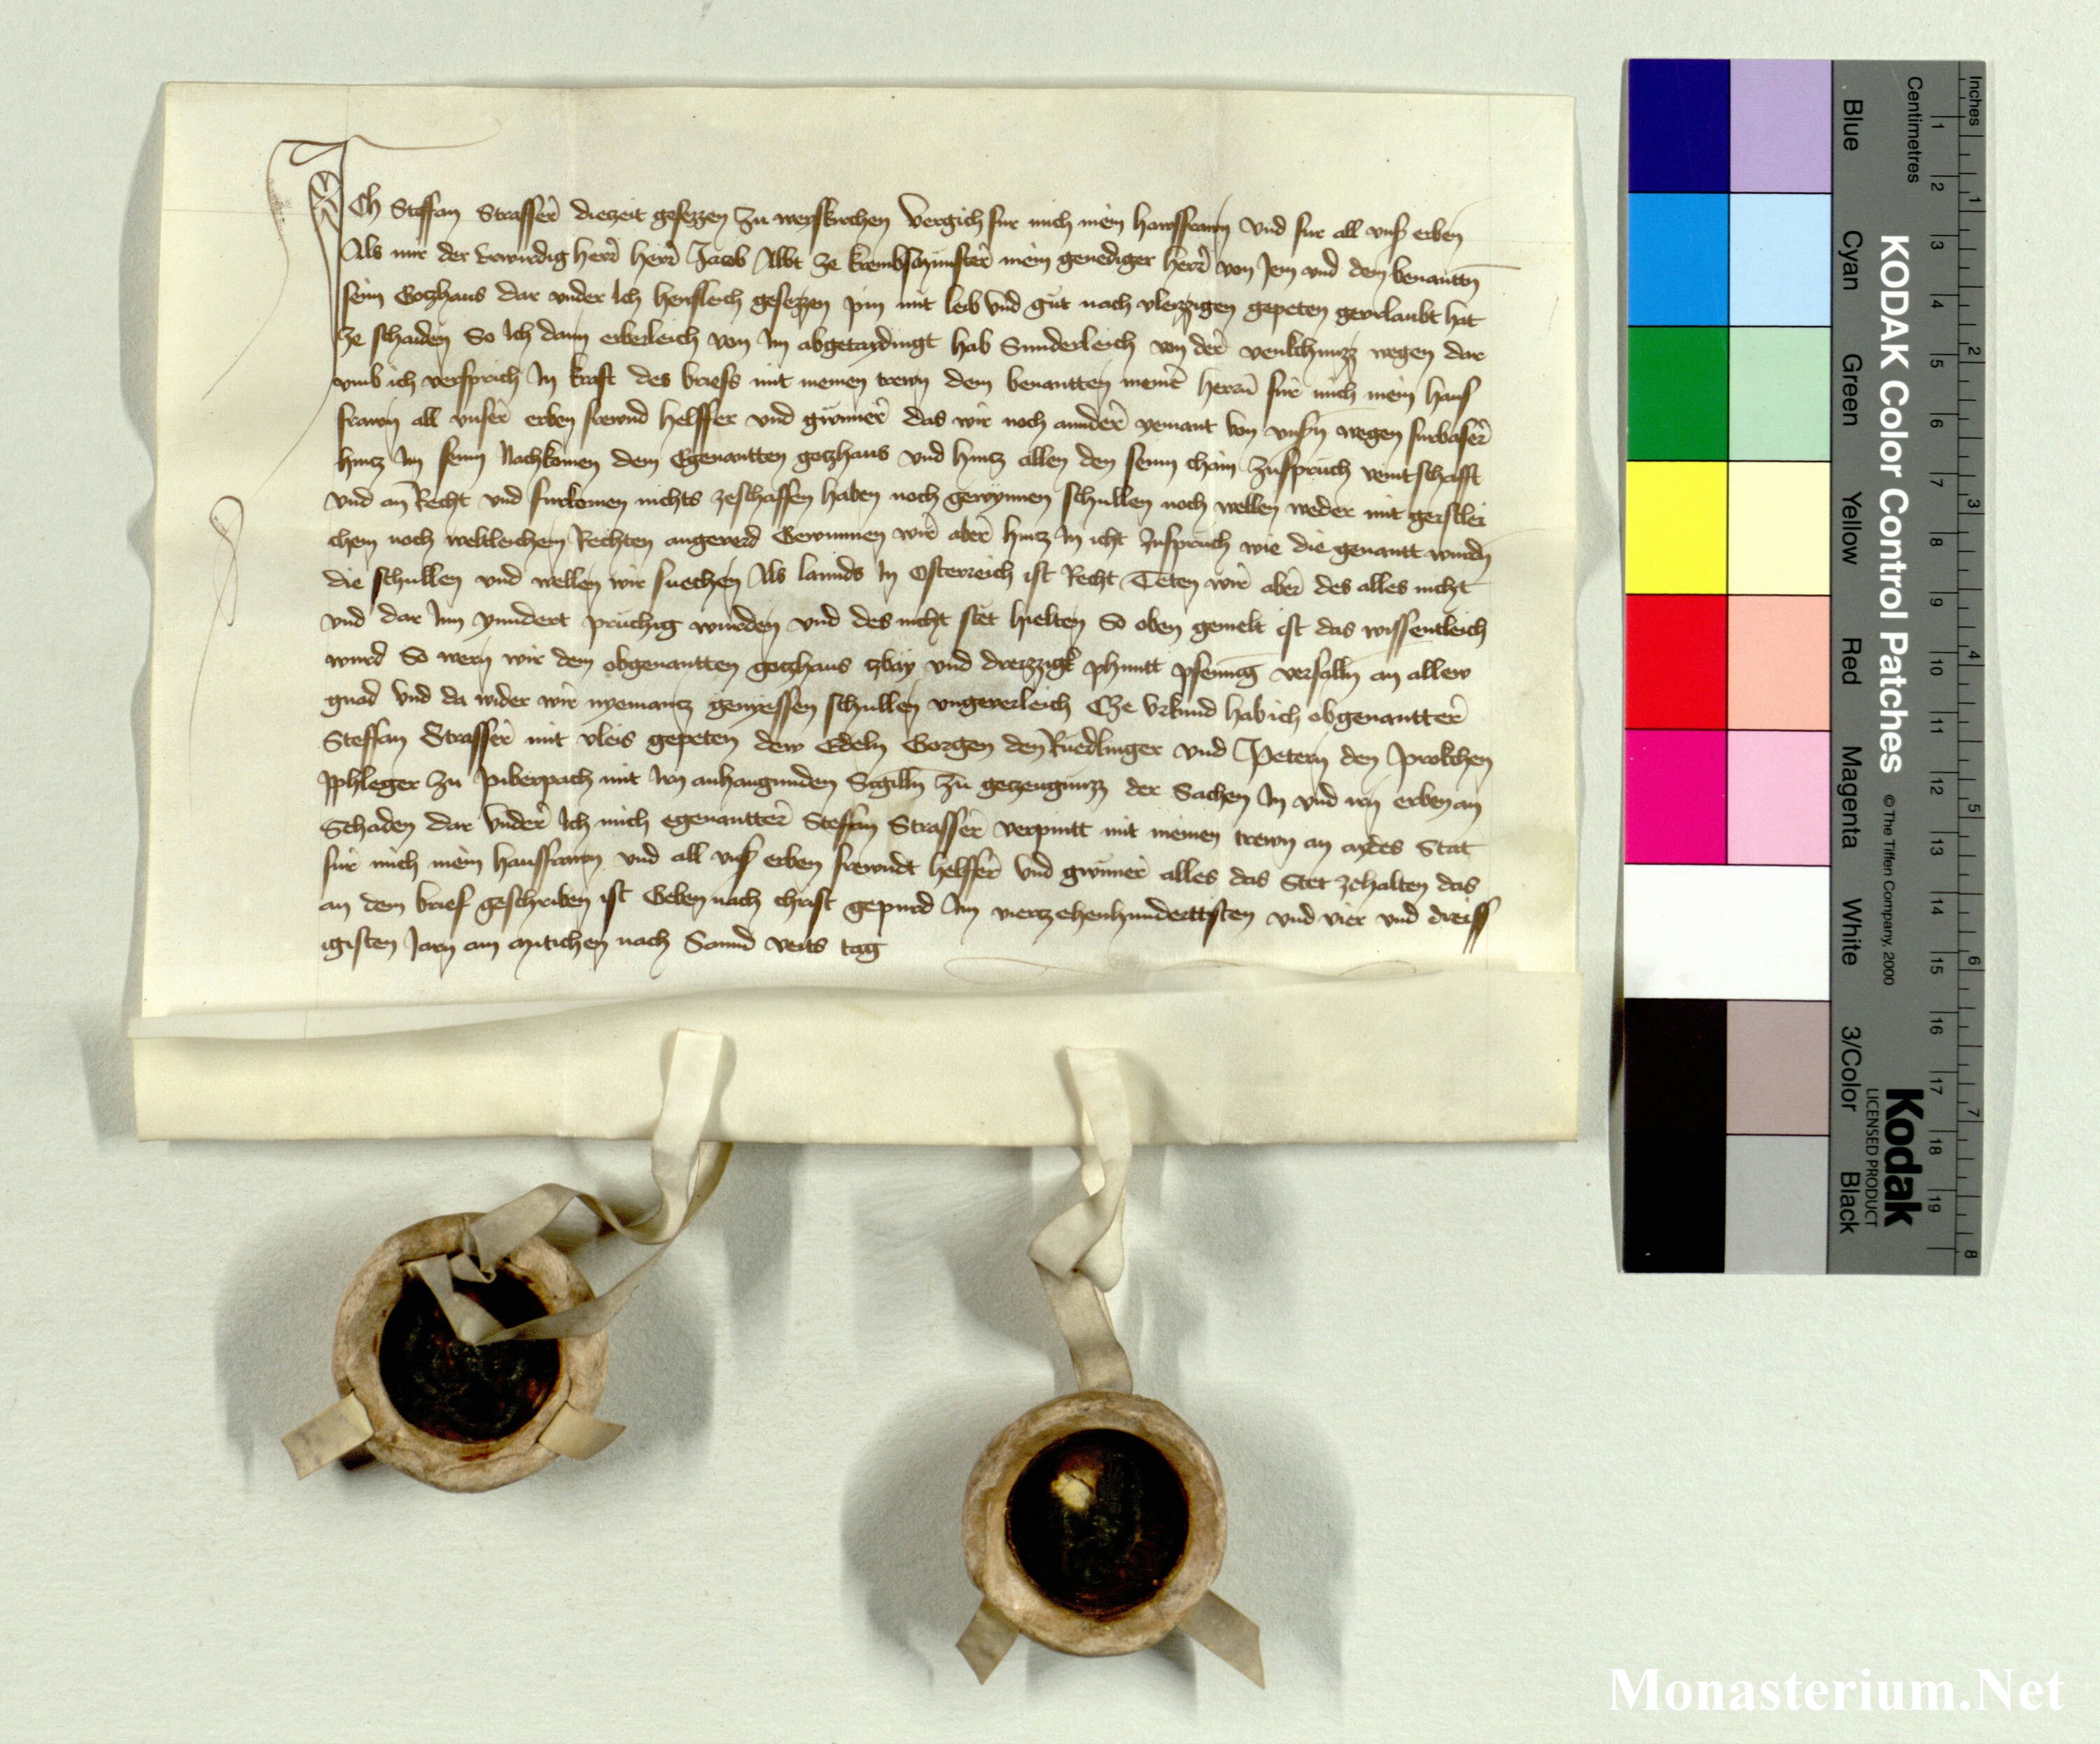 Ich Steffan Strasserr diezeit gesezzen zu weyskirchen vergich fur mich mein hawsfrawn vnd fur all vnser erben
Als mir der Erwirdig herr herr Jacob Abbt ze krembsmunster mein genediger herr von Jem vnd dem benantten
seim Gotzhaus dar vnder Ich hewsleich gesezzen pin mit leib vnd gut nach vleizzigen gepeten gevrlaubt hat
ze schaiden So Ich dann erberleich von Im abgetaydingt hab Sunderleich von der venkchnuzz wegen dar
vmb ich versprich In kraft des briefs mit meinen trewn dem benantten meinem herrn fur mich mein haus
frawn all vnser erben frewnd helffer vnd gwnner das wir noch annder yemant von vnsern wegen furbaser
hincz Im seinn Nachkomen dem Egenantten gotzhaus vnd hincz allen den seinn chain zuspruch veintschafft
vnd an Recht vnd furkomen nichts zeschaffen haben noch gewynnen schullen noch wellen weder mit geistlei
chem noch weltleichem Rechten angeuerd Gewunnen wir aber hincz In icht zuspruch wie die genantt wurdn
die schullen vnd wellen wir suechen Als lannds In Osterreich ist Recht Teten wir aber des alles nicht
vnd dar Inn yndert pruchig wurden vnd des nicht stet hielten So oben gemelt ist das wissentleich
wurd So wern wir dem obgenantten gotzhaus czway vnd dreizzigk phuntt pfennig verfalln an allew
gnad vnd da wider wir nyemantz genyessen schullen vngeuerleich Cze vrkund hab ich obgenantter
Steffan Strasser mit vleis gepeten dew Edeln Gorgen den Ruedlinger vnd Petern den Prokchen
Pphleger zu Piberpach mit Irn anhangunden Sigilln zu geczeugnuzz der Sachen In vnd irn erben an
Schaden dar vnder Ich mich egenantter Steffan Strasser verpintt mit meinen trewn an aydes Stat
fur mich mein hausfrawn vnd all vnser erben frewndt helffer vnd gwnner alles das Stet zehalten das
an dem brief geschriben ist Geben nach christ gepurd Im vierzehenhundertisten vnd vier vnd dreiss
igisten Jarn am antichen nach Sannd veits tag
KODAK Color Control Patches © The Tiffen Company, 2000 Kodak
LICENSED PRODUCT
Blue Cyan Green Yellow Red Magenta White 3/Color Black
Centimetres 1 2 3 4 5 6 7 8 9 10 11 12 13 14 15 16 17 18 19
Inches 1 2 3 4 5 6 7 8
Monasterium.Net